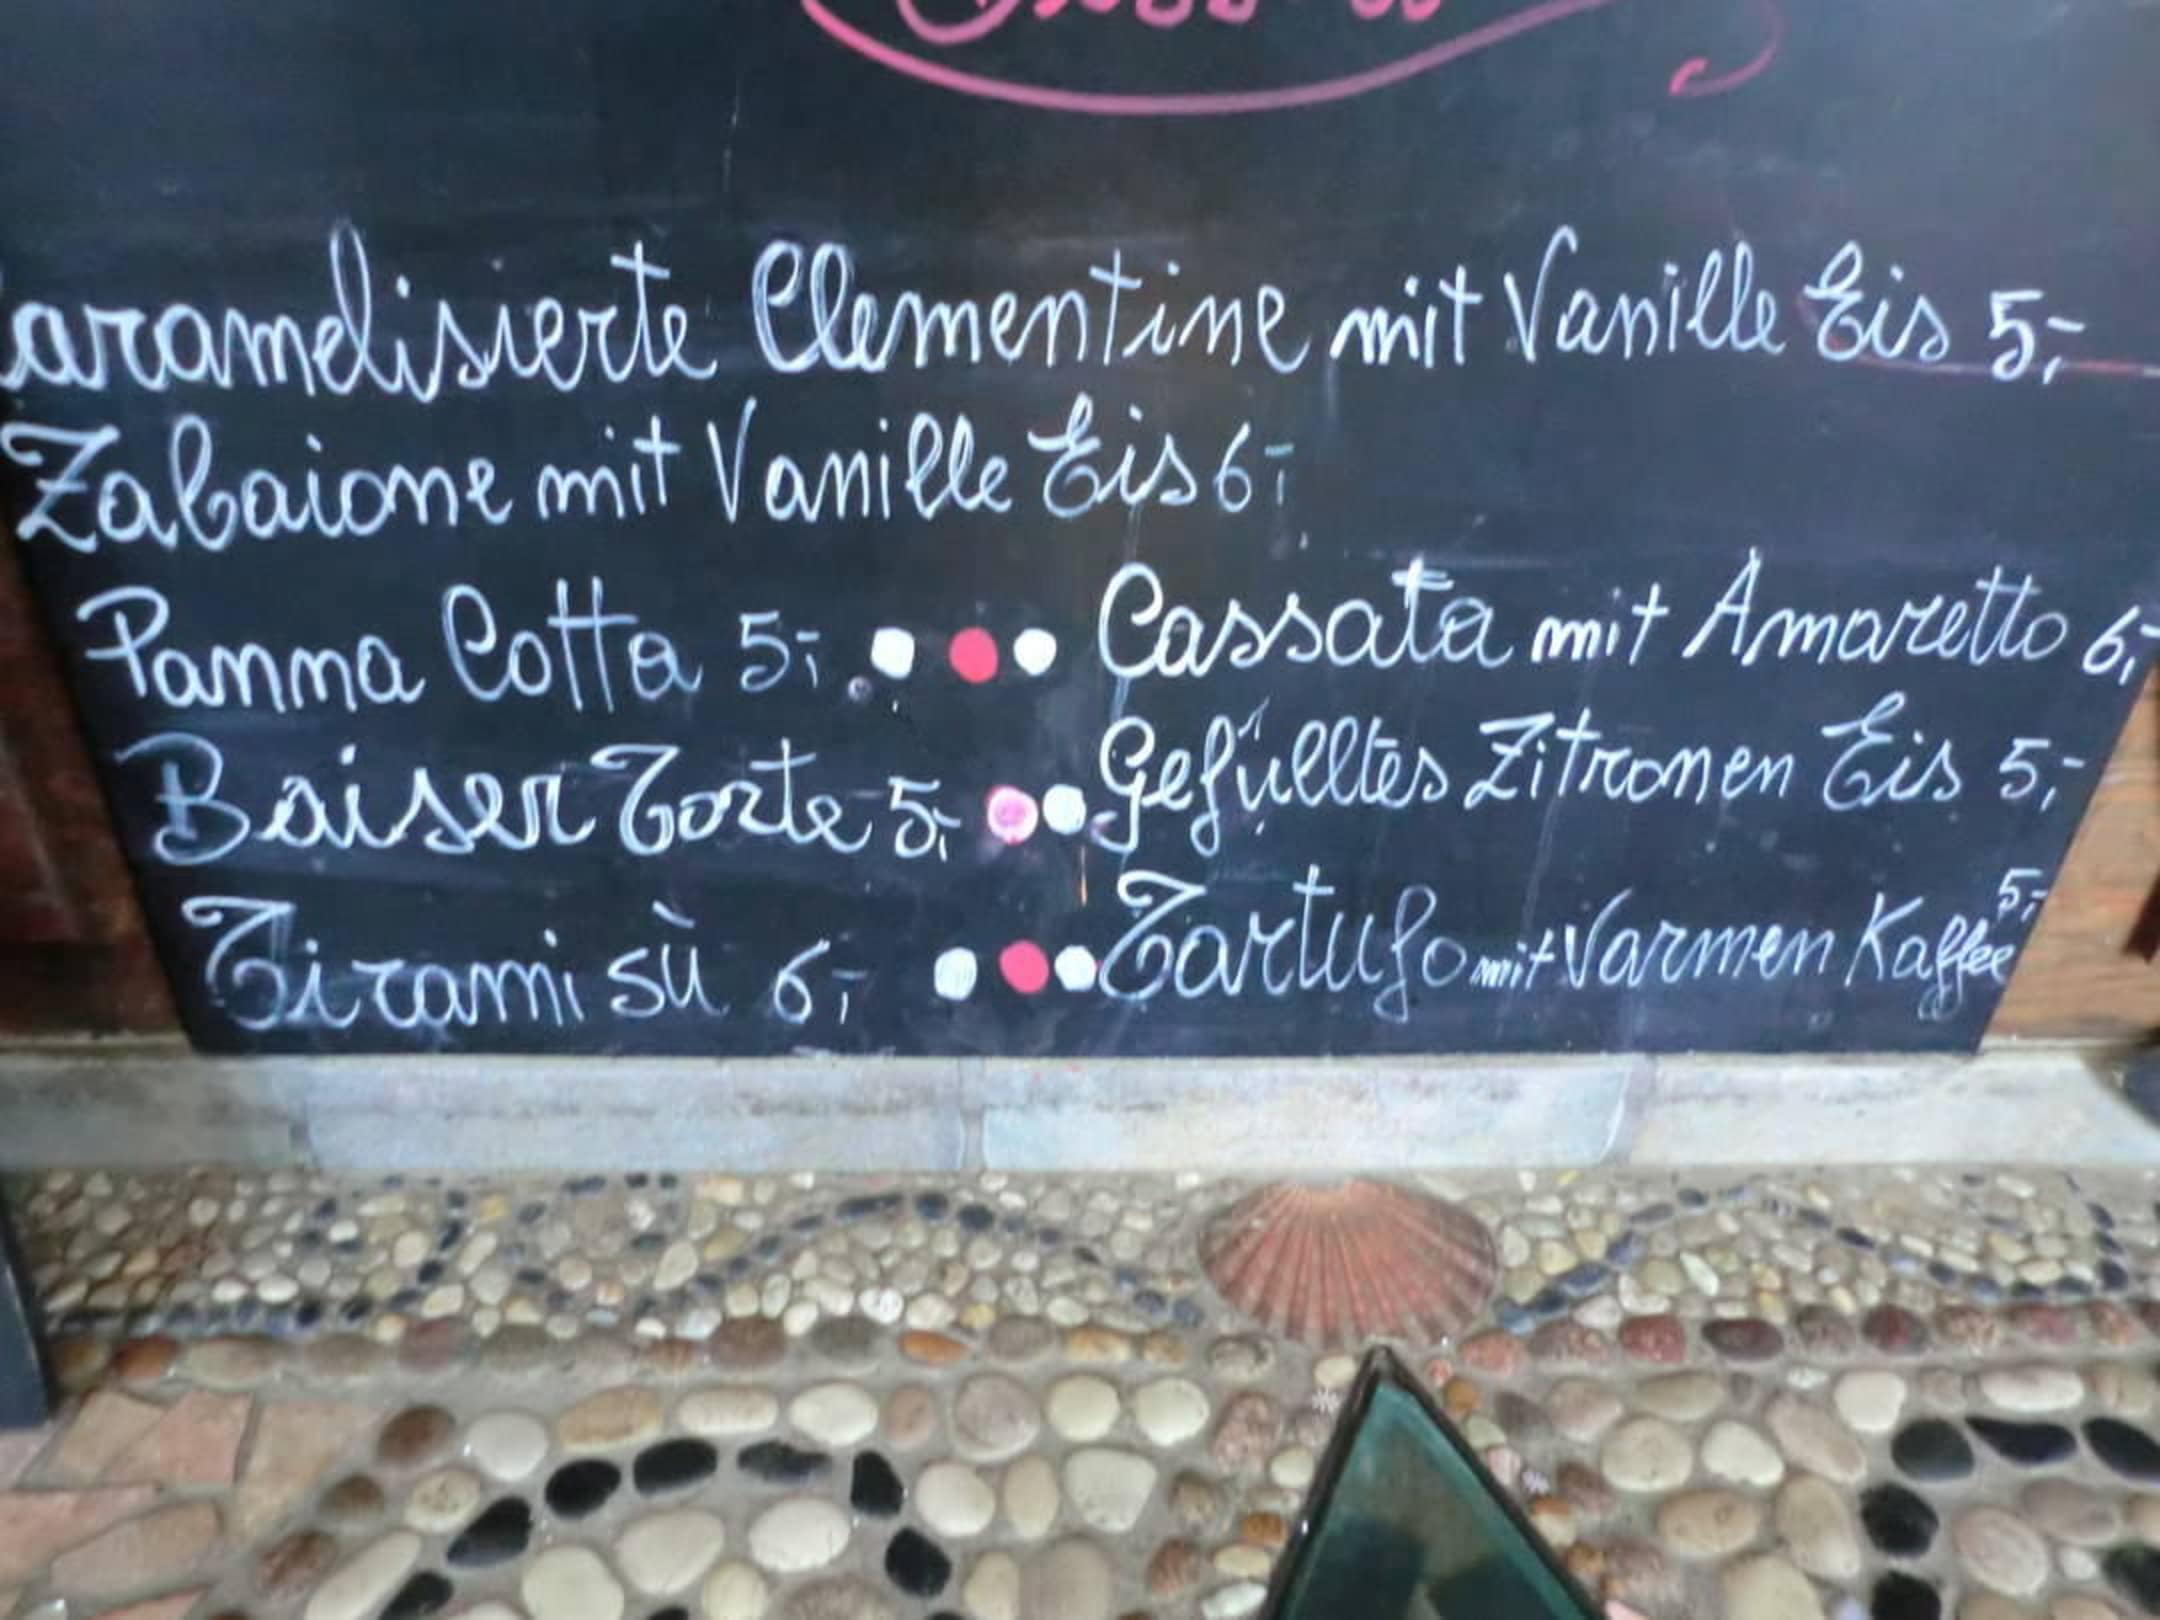 aramelisierte Clementine mit Vanille Eis 5,-
Zabaione mit Vanille Eis 6,-
Panna Cotta 5,- Cassata mit Amaretto 6,-
Baiser Torte 5,- Gefülltes Zitronen Eis 5,-
Tirami sù 6,- Tartufo mit Varmen Kaffee 5,-